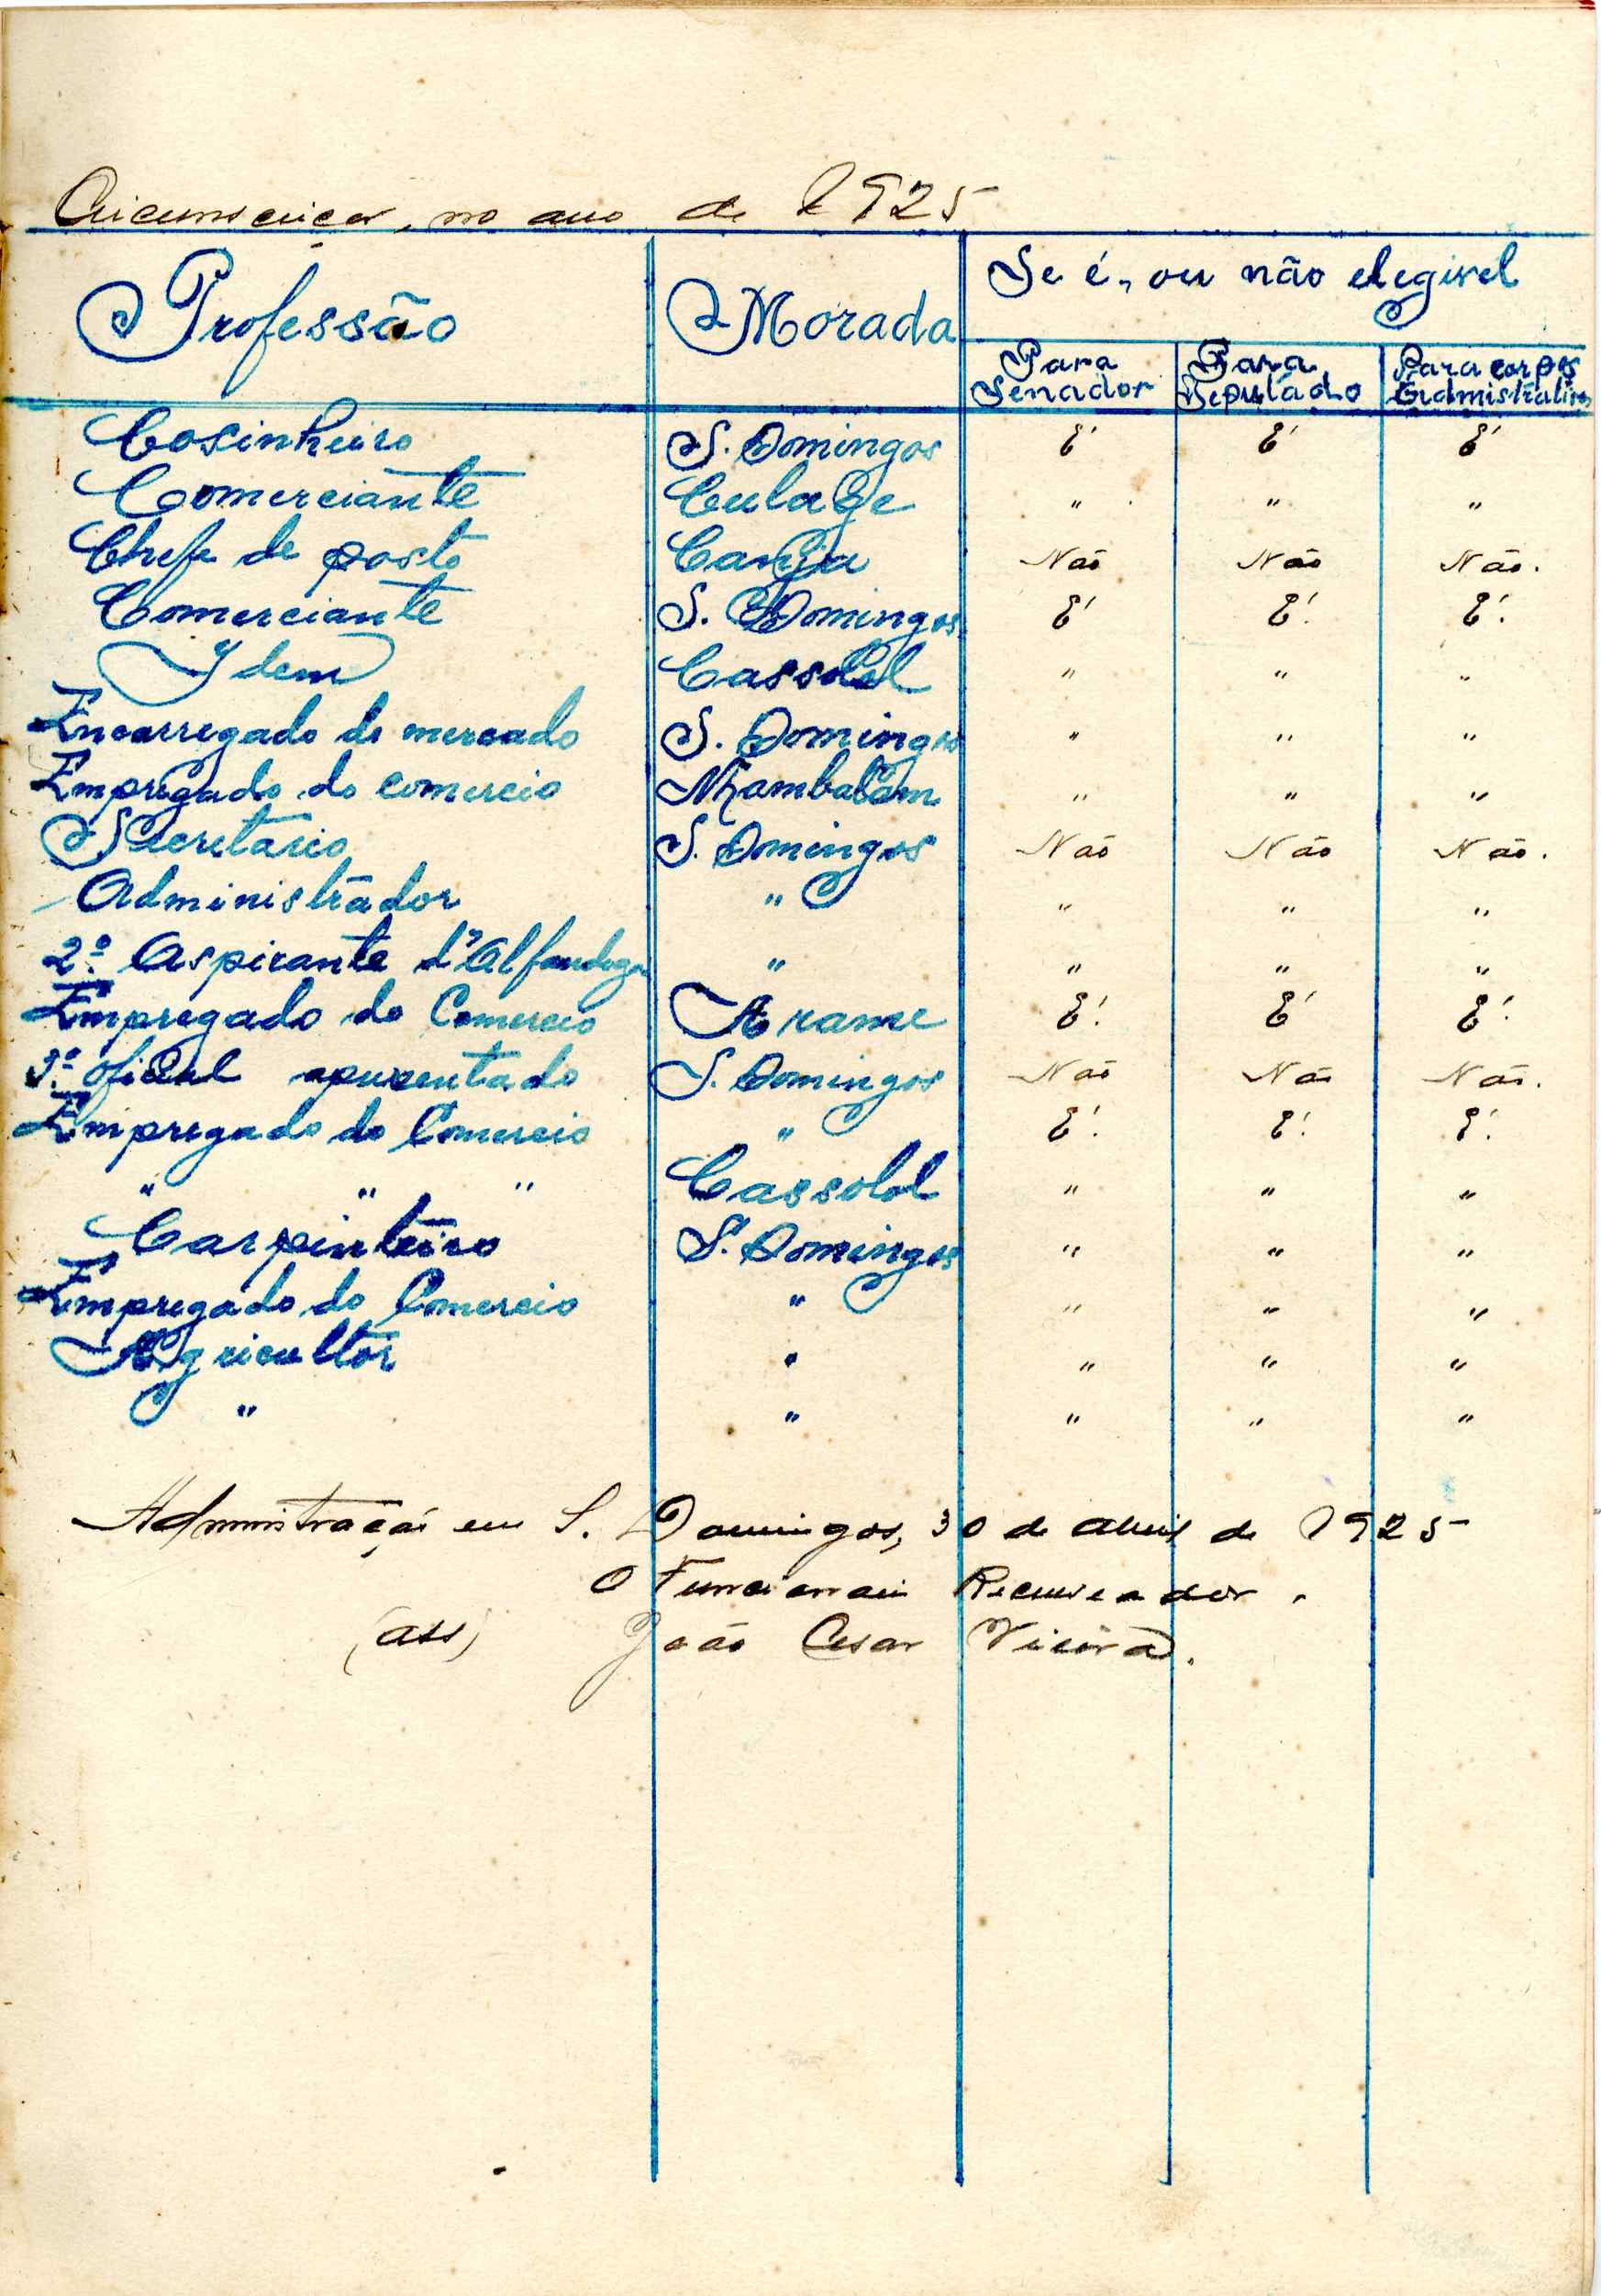 Circunscrição, no ano de 1925
Professão Morada Se é, ou não elegivel
Para Senador Para Deputado Para corpos Admistrativos
Cosinheiro S. Domingos E' E' E'
Comerciante " " "
Chefe de posto Canja Não Não Não.
Comerciante S. Domingos E' E'. E'.
Idem Cassolol " " "
Encarregado do mercado S. Domingos " " "
Empregado do comercio Nhambalam " " "
Secretário S. Domingos Não Não Não.
Administrador " " " "
2.º Aspirante d'Alfandega " " " "
Empregado do Comercio Arame E'. E' E'.
1.º oficial apusentado S. Domingos Não Não Não.
Empregado do Comercio " E'. E'. E'.
" " " Cassolol " " "
Carpinteiro S. Domingos " " "
Empregado do Comercio " " " "
Agricultor " " " "
" " " " "
Administração em S. Domingos, 30 de abril de 1925
O Funcionario Recenseador.
(ass) João Cesar Vieira.